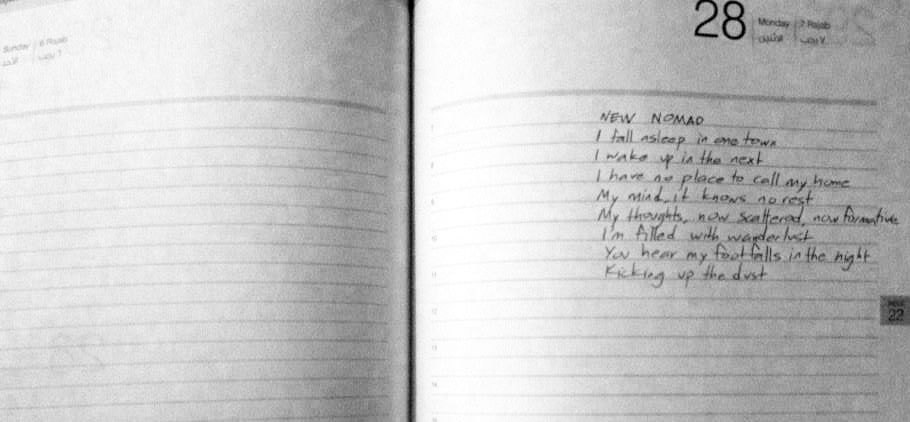 Sunday 6 Rajab
الأحد ٦ رجب
28 Monday 7 Rajab
الاثنين ٧ رجب
NEW NOMAD
I fall asleep in one town
I wake up in the next
I have no place to call my home
My mind, it knows no rest
My thoughts, now scattered, now formative
I'm filled with wanderlust
You hear my footfalls in the night
Kicking up the dust
22